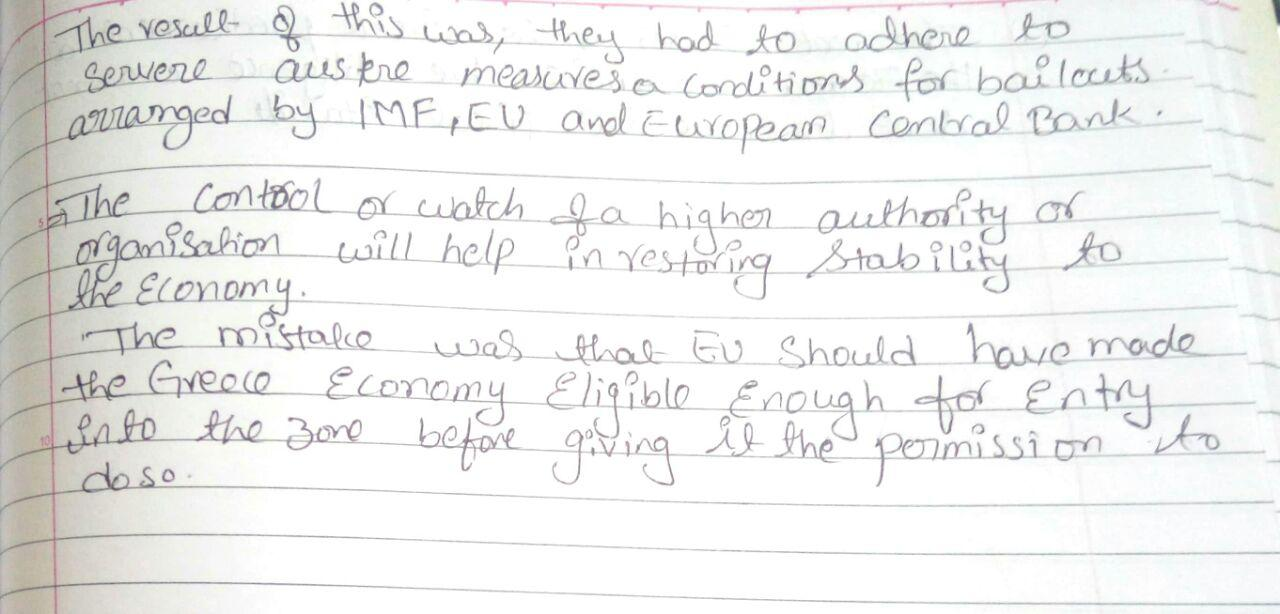 The result of this was, they had to adhere to
servere austere measures a conditions for bailouts.
arranged by IMF, EU and European Central Bank.
→ The control or watch of a higher authority or
organisation will help in restoring stability to
the Economy.
The mistake was that EU should have made
the Greece Economy Eligible Enough for Entry
5
into the zone before giving it the permission to
10
do so.